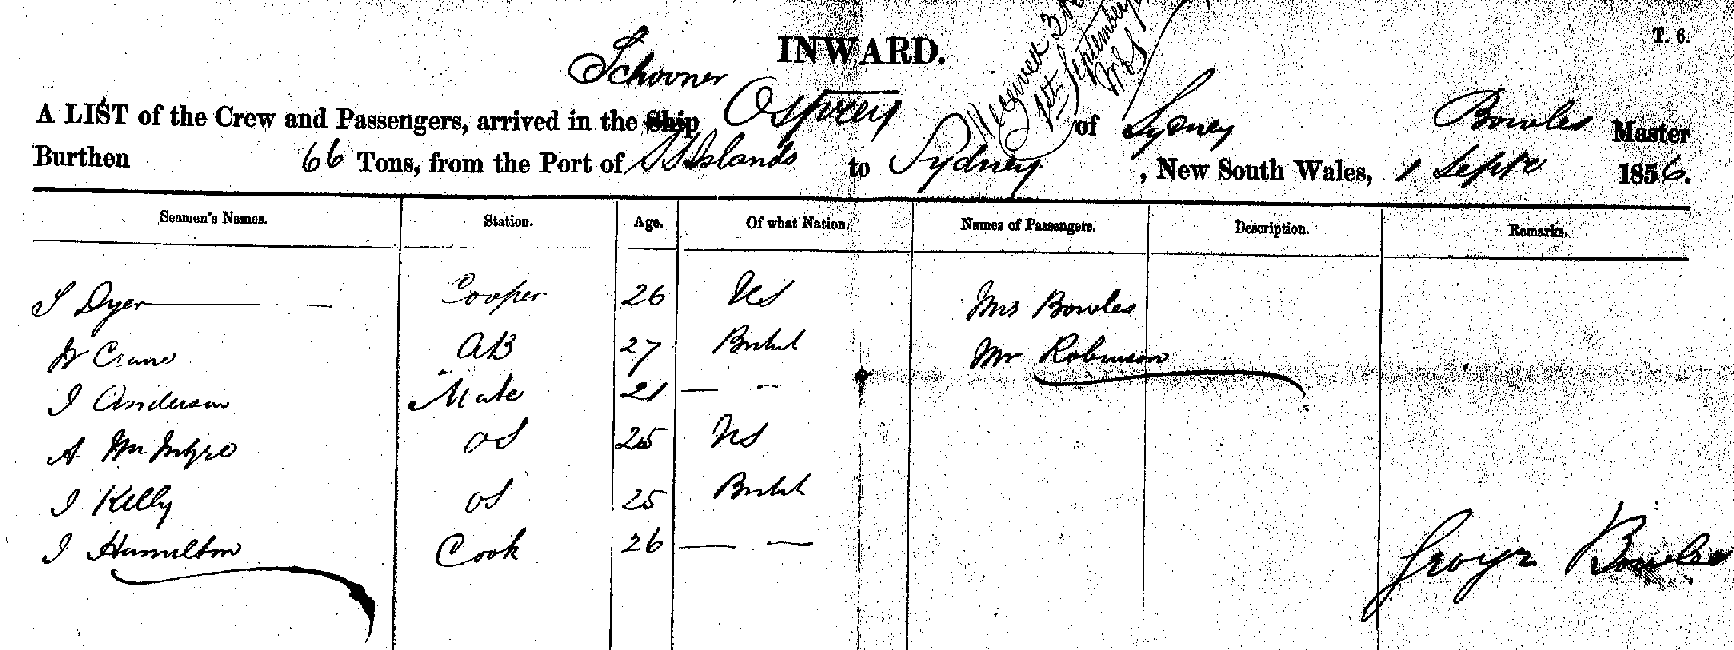 INWARD.
T. 6.
Schooner
A LIST of the Crew and Passengers, arrived in the Ship Osprey of Sydney Bowles Master
Burthen 66 Tons, from the Port of S S Islands to Sydney, New South Wales, 1 Septr 1856.
Seamen's Names. Station. Age. Of what Nation. Names of Passengers. Description. Remarks.
J Dyer Cooper 26 US Mrs Bowles
W Crane AB 27 British Mr Robinson
J Anderson Mate 21 — -
A McIntyre OS 25 US
J Kelly OS 25 British
J Hamilton Cook 26 — —
George Bowles